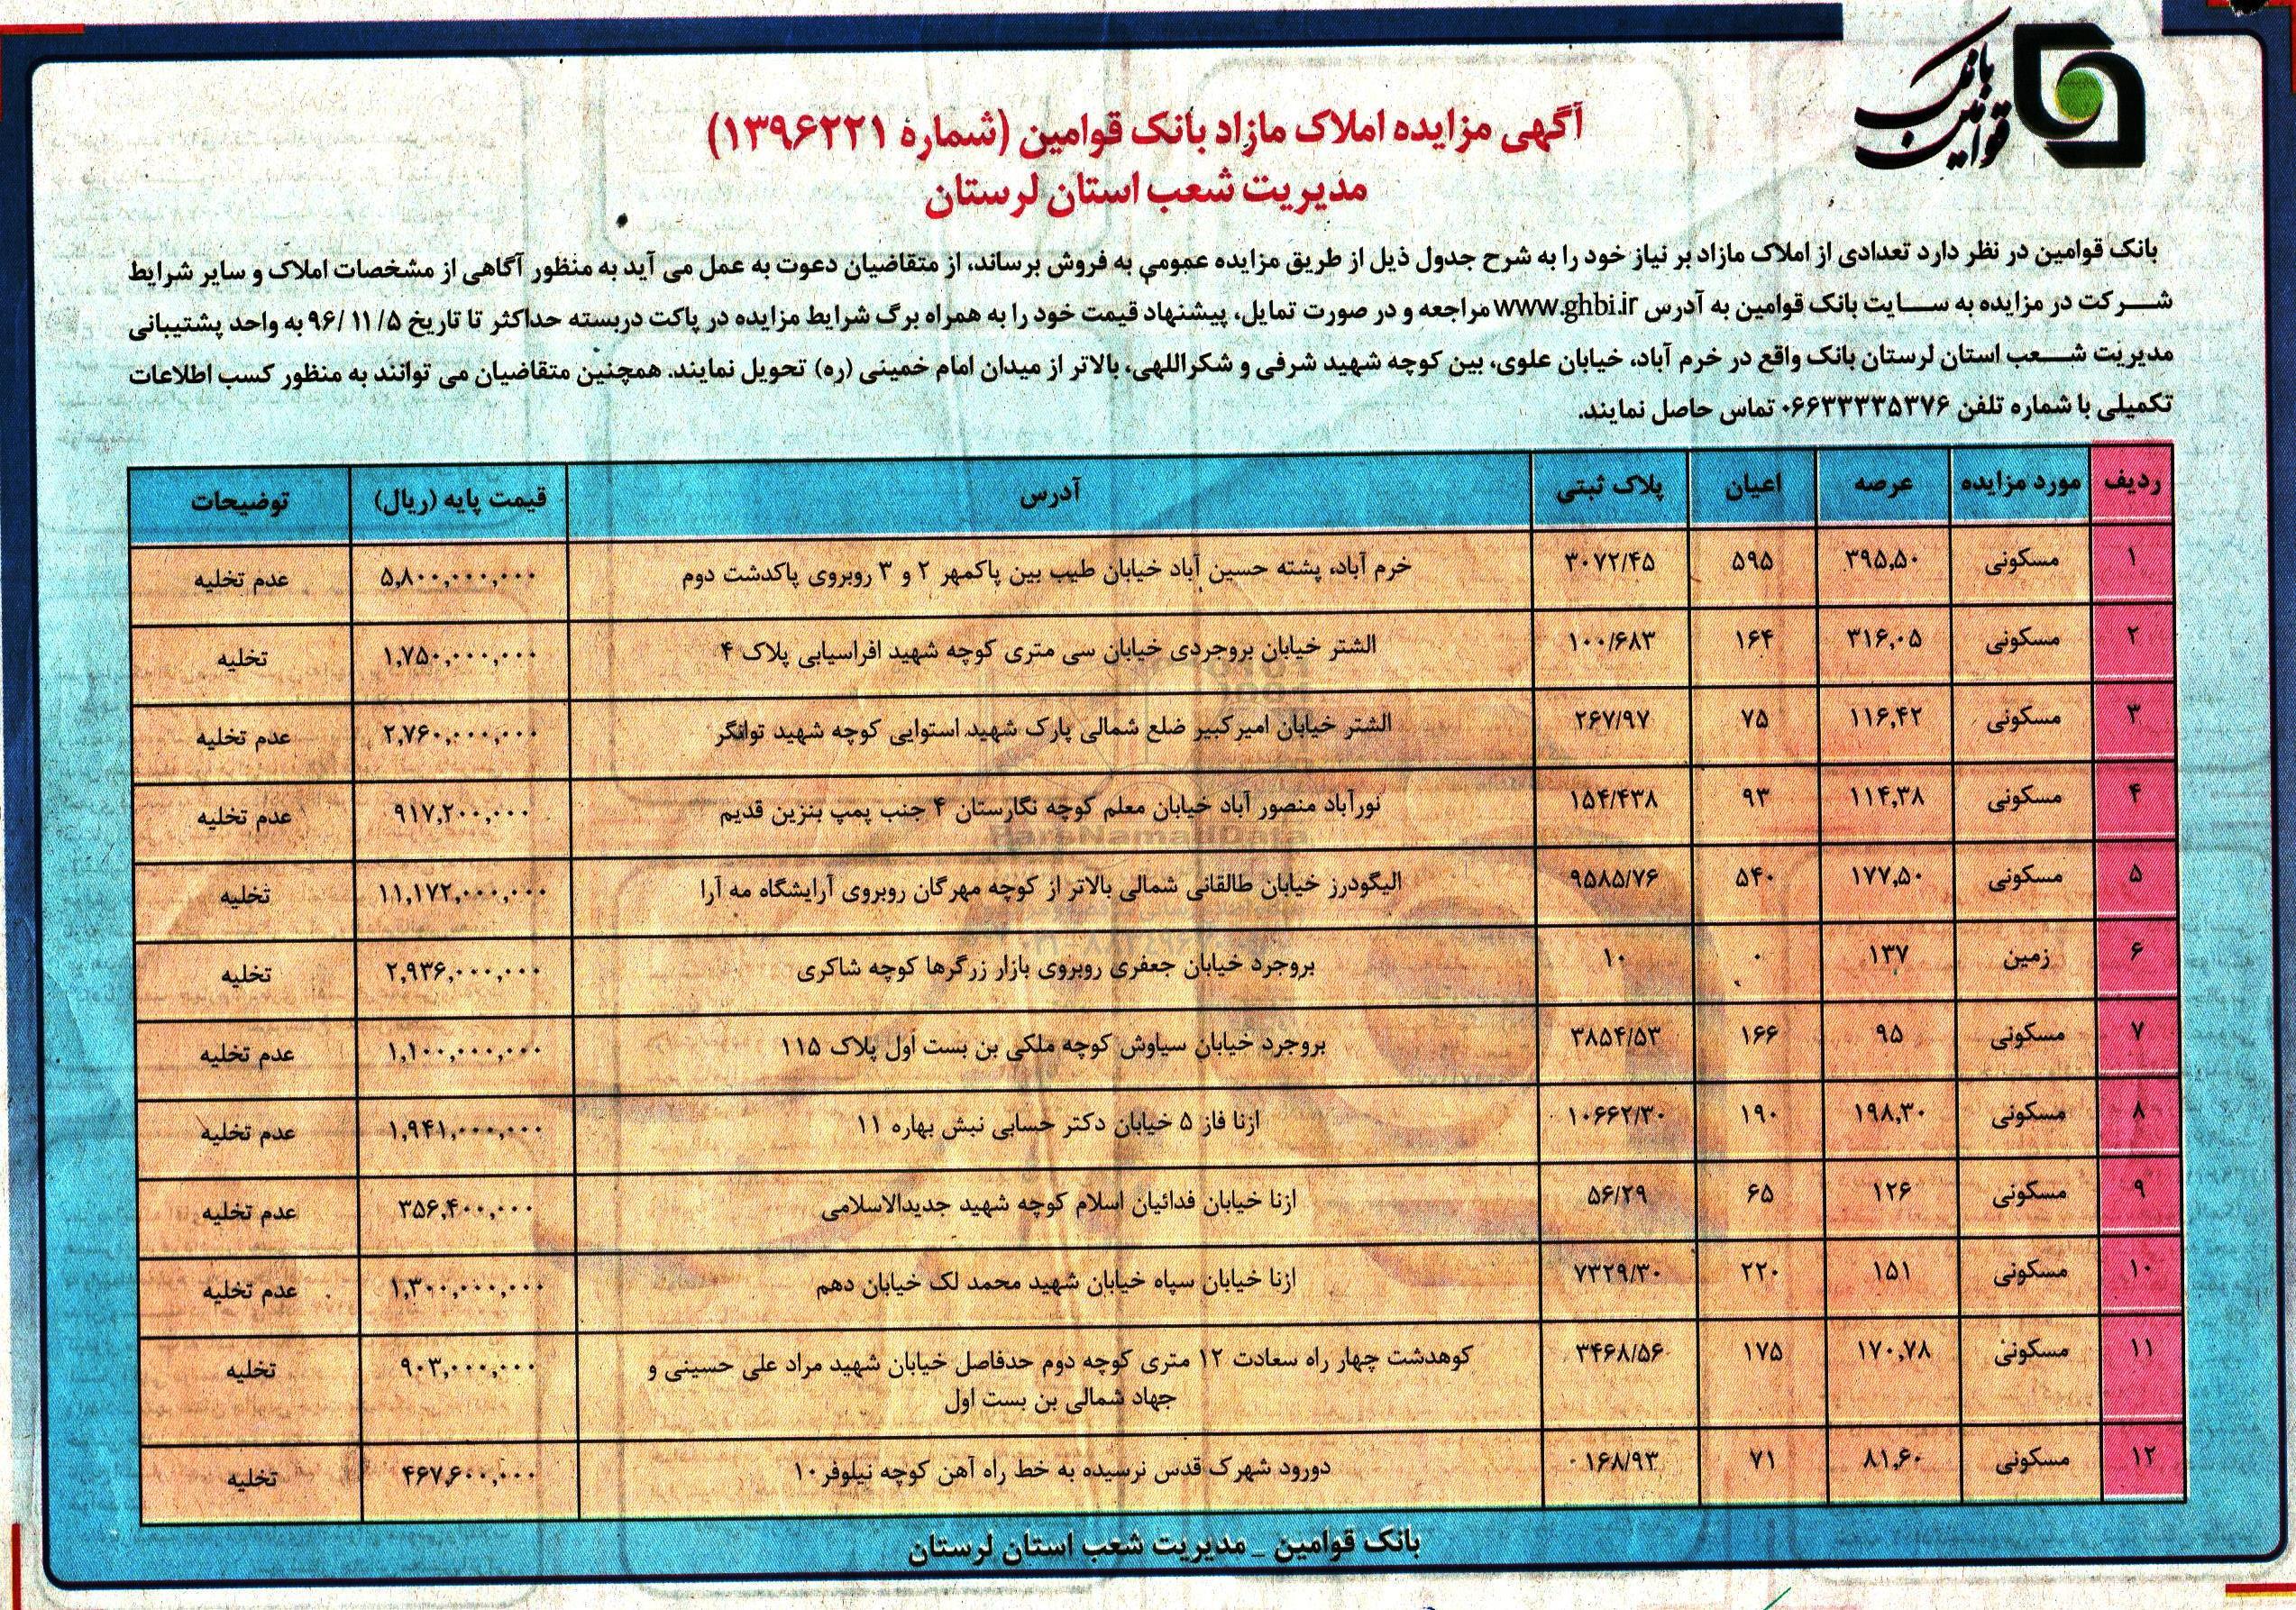 بانک قوامین
آگهی مزایده املاک مازاد بانک قوامین (شماره ۱۳۹۶۲۲۱)
مدیریت شعب استان لرستان
بانک قوامین در نظر دارد تعدادی از املاک مازاد بر نیاز خود را به شرح جدول ذیل از طریق مزایده عمومی به فروش برساند، از متقاضیان دعوت به عمل می آید به منظور آگاهی از مشخصات املاک و سایر شرایط
شرکت در مزایده به سایت بانک قوامین به آدرس www.ghbi.ir مراجعه و در صورت تمایل، پیشنهاد قیمت خود را به همراه برگ شرایط مزایده در پاکت دربسته حداکثر تا تاریخ ۹۶/۱۱/۵ به واحد پشتیبانی
مدیریت شعب استان لرستان بانک واقع در خرم آباد، خیابان علوی، بین کوچه شهید شرفی و شکراللهی، بالاتر از میدان امام خمینی (ره) تحویل نمایند. همچنین متقاضیان می توانند به منظور کسب اطلاعات
تکمیلی با شماره تلفن ۰۶۶۳۳۳۳۵۳۷۶ تماس حاصل نمایند.
ردیف مورد مزایده عرصه اعیان پلاک ثبتی آدرس قیمت پایه (ریال) توضیحات
۱ مسکونی ۳۹۵,۵۰ ۵۹۵ ۳۰۷۲/۴۵ خرم آباد، پشته حسین آباد خیابان طیب بین پاکمهر ۲ و ۳ روبروی پاکدشت دوم ۵,۸۰۰,۰۰۰,۰۰۰ عدم تخلیه
۲ مسکونی ۳۱۶,۰۵ ۱۶۴ ۱۰۰/۶۸۳ الشتر خیابان بروجردی خیابان سی متری کوچه شهید افراسیابی پلاک ۴ ۱,۷۵۰,۰۰۰,۰۰۰ تخلیه
۳ مسکونی ۱۱۶,۴۲ ۷۵ ۲۶۷/۹۷ الشتر خیابان امیرکبیر ضلع شمالی پارک شهید استوایی کوچه شهید توانگر ۲,۷۶۰,۰۰۰,۰۰۰ عدم تخلیه
۴ مسکونی ۱۱۴,۳۸ ۹۳ ۱۵۴/۴۳۸ نورآباد منصور آباد خیابان معلم کوچه نگارستان ۴ جنب پمپ بنزین قدیم ۹۱۷,۲۰۰,۰۰۰ عدم تخلیه
۵ مسکونی ۱۷۷,۵۰ ۵۴۰ ۹۵۸۵/۷۶ الیگودرز خیابان طالقانی شمالی بالاتر از کوچه مهرگان روبروی آرایشگاه مه آرا ۱۱,۱۷۲,۰۰۰,۰۰۰ تخلیه
۶ زمین ۱۳۷ ۰ ۱۰ بروجرد خیابان جعفری روبروی بازار زرگرها کوچه شاکری ۲,۹۳۶,۰۰۰,۰۰۰ تخلیه
۷ مسکونی ۹۵ ۱۶۶ ۳۸۵۴/۵۳ بروجرد خیابان سیاوش کوچه ملکی بن بست اول پلاک ۱۱۵ ۱,۱۰۰,۰۰۰,۰۰۰ عدم تخلیه
۸ مسکونی ۱۹۸,۳۰ ۱۹۰ ۱۰۶۶۲/۳۰ ازنا فاز ۵ خیابان دکتر حسابی نبش بهاره ۱۱ ۱,۹۴۱,۰۰۰,۰۰۰ عدم تخلیه
۹ مسکونی ۱۲۶ ۶۵ ۵۶/۲۹ ازنا خیابان فدائیان اسلام کوچه شهید جدیدالاسلامی ۳۵۶,۴۰۰,۰۰۰ عدم تخلیه
۱۰ مسکونی ۱۵۱ ۲۲۰ ۷۳۲۹/۳۰ ازنا خیابان سپاه خیابان شهید محمد لک خیابان دهم ۱,۳۰۰,۰۰۰,۰۰۰ عدم تخلیه
۱۱ مسکونی ۱۷۰,۷۸ ۱۷۵ ۳۴۶۸/۵۶ کوهدشت چهار راه سعادت ۱۲ متری کوچه دوم حدفاصل خیابان شهید مراد علی حسینی و ۹۰۳,۰۰۰,۰۰۰ تخلیه
جهاد شمالی بن بست اول
۱۲ مسکونی ۸۱,۶۰ ۷۱ ۱۶۸/۹۳ دورود شهرک قدس نرسیده به خط راه آهن کوچه نیلوفر۱۰ ۴۶۷,۶۰۰,۰۰۰ تخلیه
بانک قوامین _ مدیریت شعب استان لرستان